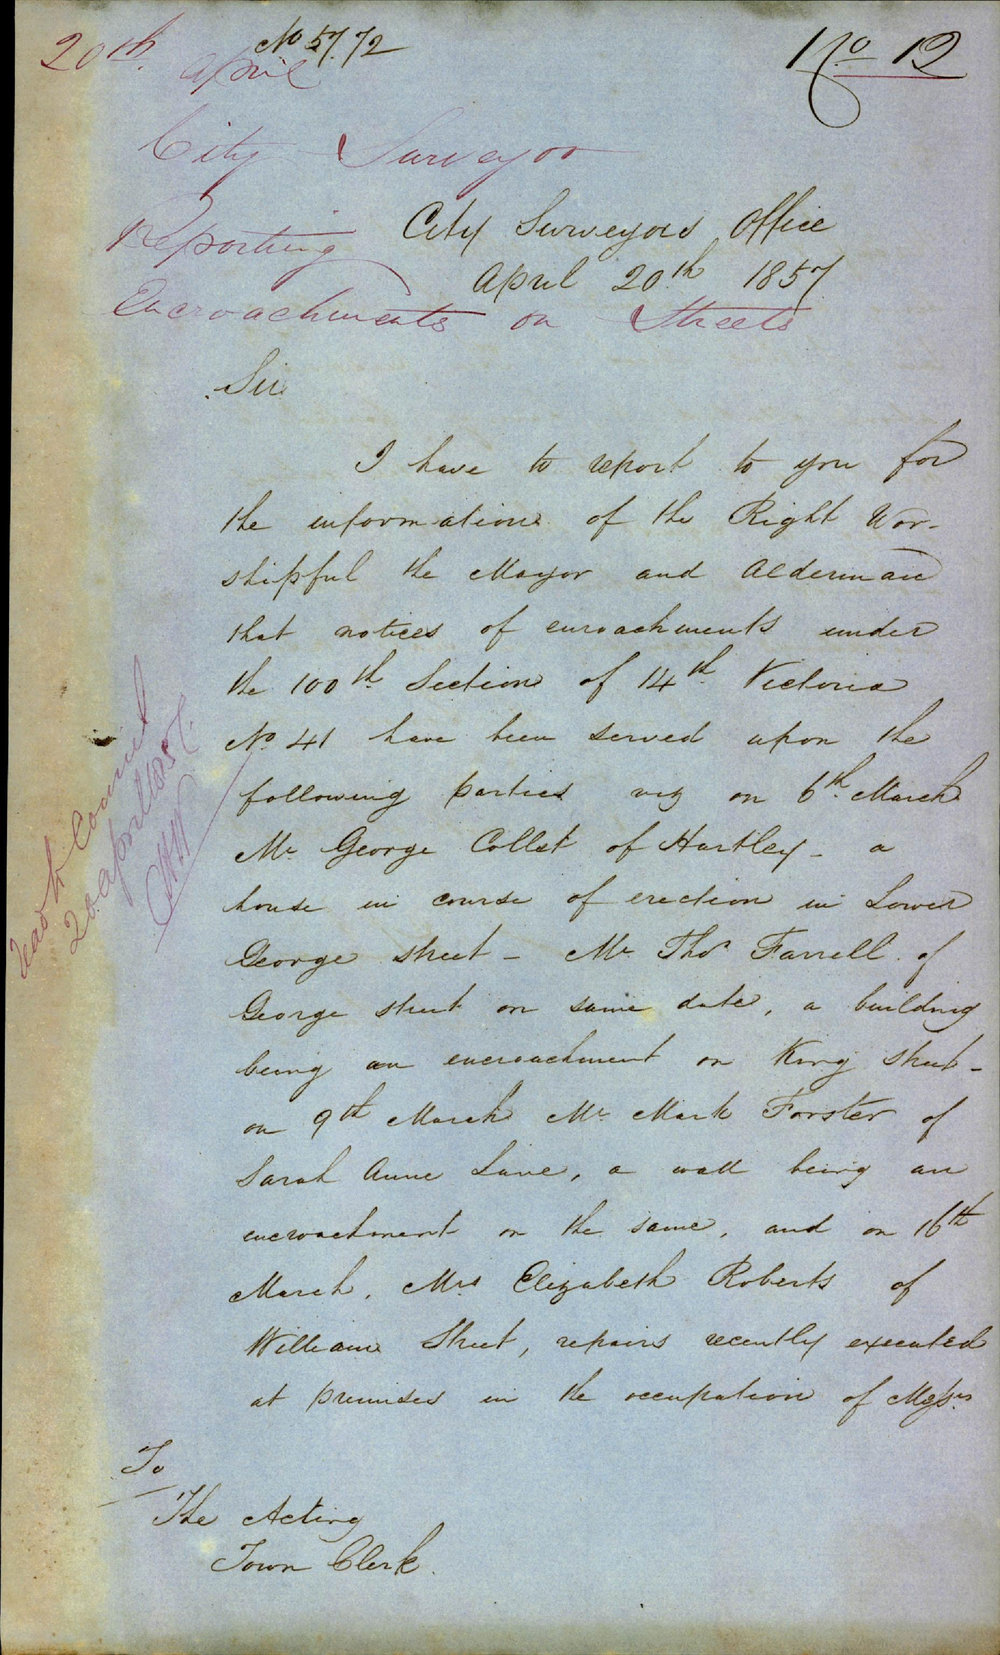 20th April
No 57.72
No 12
City Surveyor
Reporting
Encroachments on Streets
City Surveyors Office
April 20th 1857
Sir
I have to report to you for
the information of the Right Wor-
shipful the Mayor and Aldermen
that notices of encroachments under
the 100th Section of 14th Victoria
No 41 have been served upon the
following parties viz on 6th March
Mr George Collet of Hartley - a
house in course of erection in Lower
George street - Mr Thos Farrell of
George street on same date, a building
being an encroachment on King street -
on 9th March Mr Mark Forster of
Sarah Anne Lane, a wall being an
encroachment on the same, and on 16th
March, Mrs Elizabeth Roberts of
William Street, repairs recently executed
at premises in the occupation of Messrs
To
The Acting
Town Clerk.
Read to Council
20 April 1857.